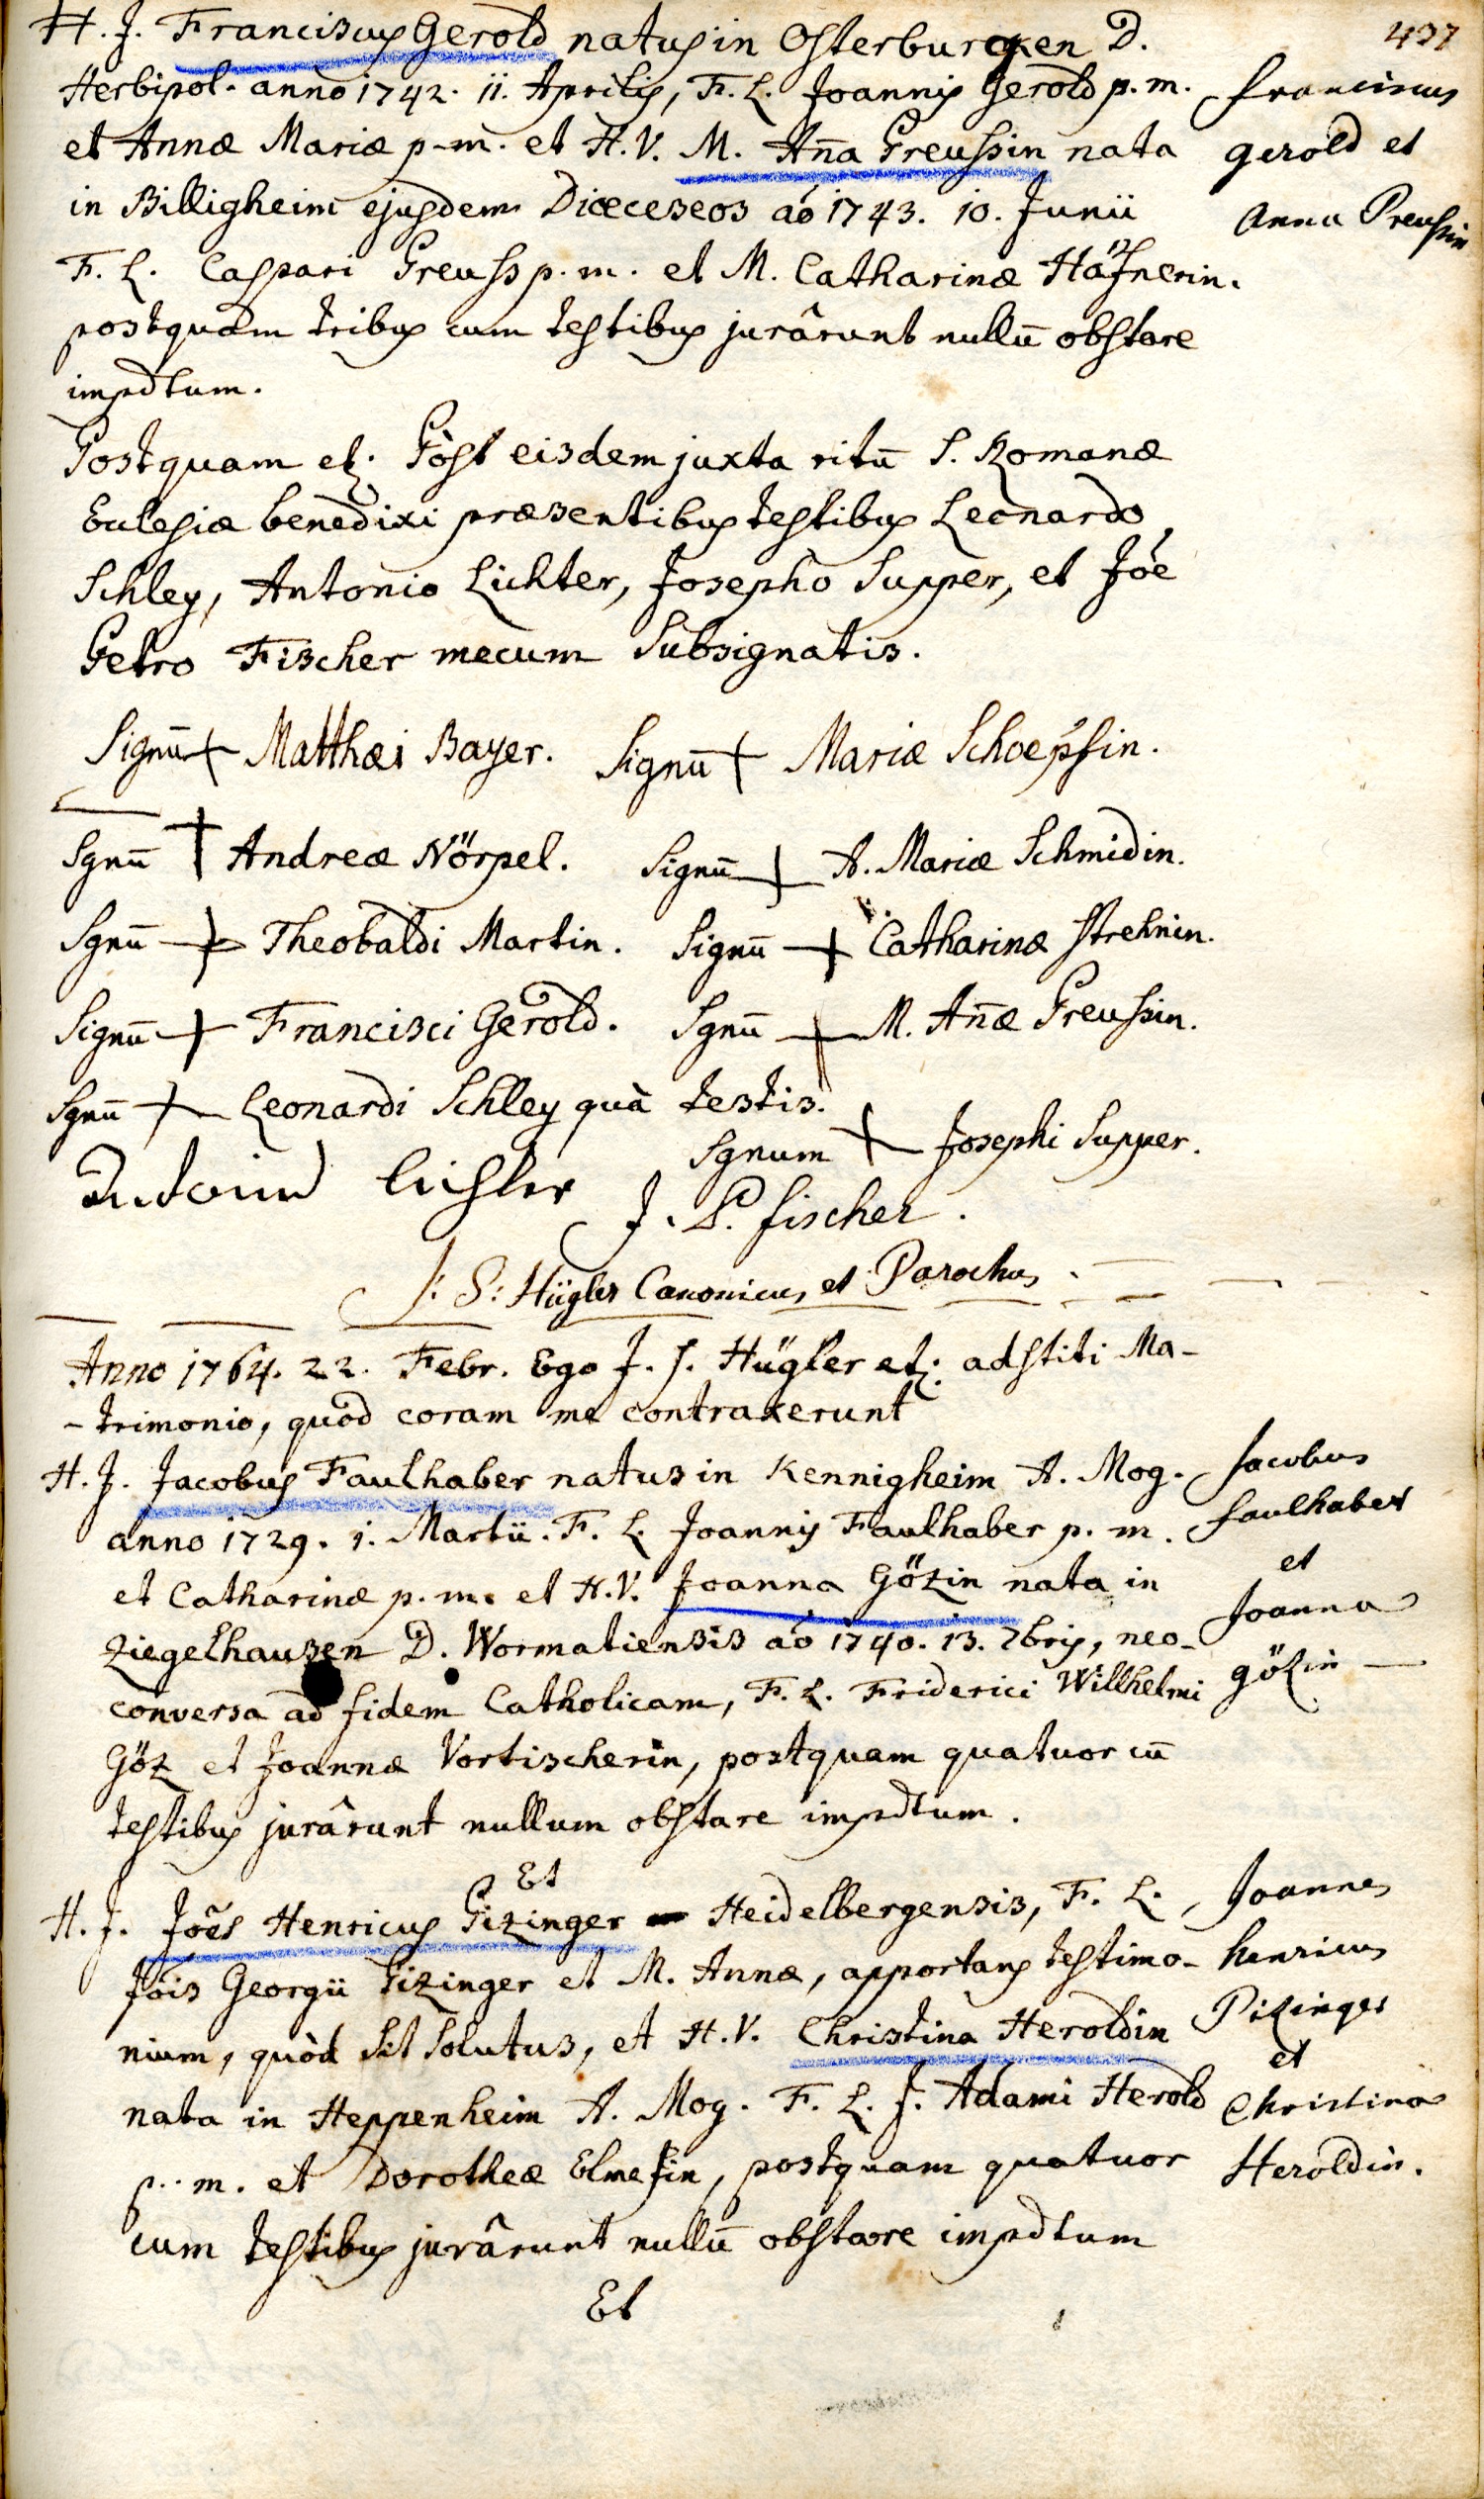 437
H. J. Franciscus Gerold natus in Osterburcken D.
Herbipol. anno 1742. 11. Aprilis, F. L. Joannis Gerold p. m.
et Annæ Mariæ p. m. et H. V. M. Aña Preussin nata
in Billigheim ejusdem Diœceseos aó 1743. 10. Junii
F. L. Caspari Preuss p. m. et M. Catharinæ Häfnerin.
postquam tribus cum testibus jurârunt nullū obstare
impdtum.
Franciscus
Gerold et
Anna Preussin
Postquam etz. Pòst eisdem juxta ritū S. Romanæ
Eclesiæ benedixi præsentibus testibus Leonardo
Schley, Antonio Lichter, Josepho Supper, et Jóe
Petro Fischer mecum subsignatis.
Signū + Matthæi Bayer. Signū + Mariæ Schoepsin.
Sgnū + Andreæ Nörpel. Signū + A. Mariæ Schmidin.
Sgnū + Theobaldi Martin. Signū + Catharinæ Strehnin.
Signū + Francisci Gerold. Sgnū + M. Añæ Preussin.
Sgnū + Leonardi Schley quà testis.
Sgnum + Josephi Supper.
Antoniud Lichter J. P. Fischer.
J: S: Hügler Canonicus et Parochus.
Anno 1764. 22. Febr. Ego J. S. Hügler etz. adstiti Ma-
-trimonio, quod coram me contraxerunt
H. J. Jacobus Faulhaber natus in Kennigheim A. Mog.
anno 1729. 1. Martii. F. L. Joannis Faulhaber p. m.
et Catharinæ p. m. et H. V. Joanna Gözin nata in
Ziegelhausen D. Wormatiensis aó 1740. 13. 7bris, neo-
conversa ad fidem Catholicam, F. L. Friderici Willhelmi
Göz et Joannæ Vortischerin, postquam quatuor cū
testibus jurârunt nullum obstare impdtum.
Jacobus
Faulhaber
et
Joanna
Gözin
Et
H. J. Jöes Henricus Pizinger Heidelbergensis, F. L.
Jöis Georgii Pizinger et M. Annæ, apportans testimo-
nium, quòd sit solutus, et H. V. Christina Heroldin
nata in Heppenheim A. Mog. F. L. J. Adami Herold
p. m. et Dorotheæ, postquam quatuor
cum testibus jurârunt nullū obstare impdtum
Joannes
Henricus
Pizinger
et
Christina
Heroldin.
Et